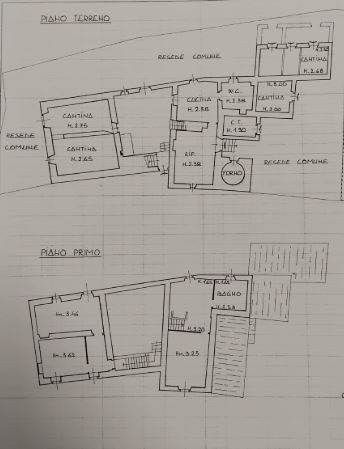 PIANO TERRENO
RESEDE COMUNE
CANTINA
H. 2.68
CANTINA
H. 2.75
CUCINA
H. 2.80
W.C.
H. 2.38
H. 3.00
CANTINA
H. 2.00
C.T.
H. 1.90
RESEDE
COMUNE
CANTINA
H. 2.65
RIP.
H. 2.38
RESEDE COMUNE
FORNO
PIANO PRIMO
BAGNO
H. 3.16
H. 3.20
H. 3.63
H. 3.25